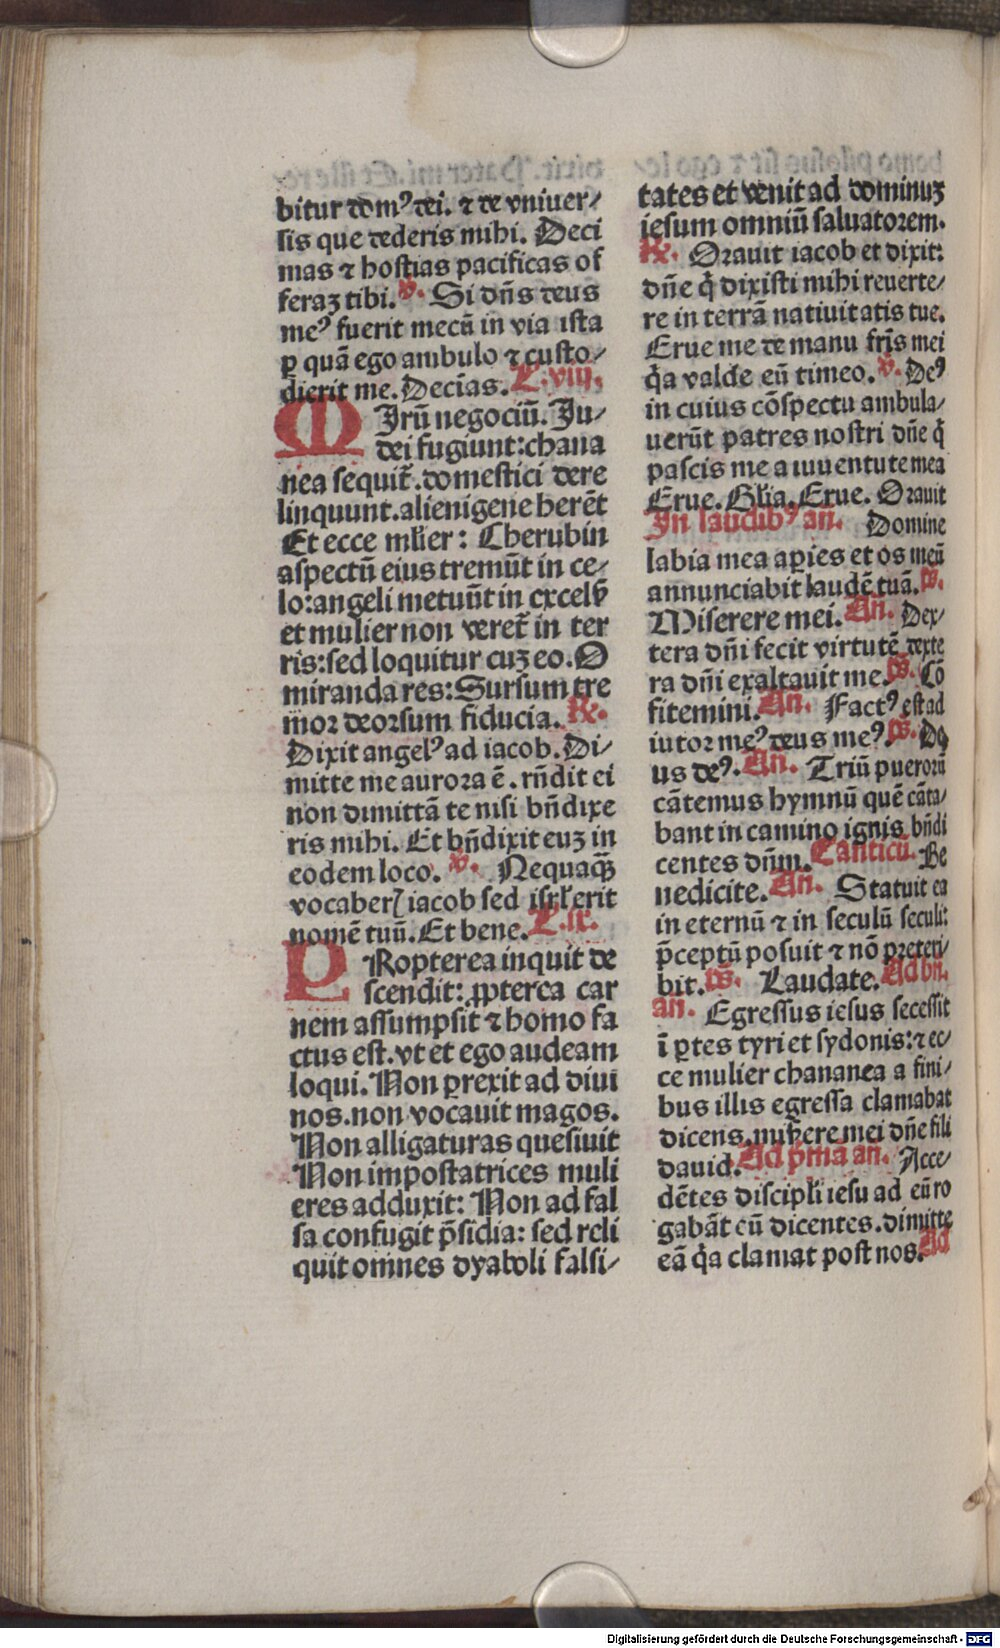 bitur domꝰ dei. ⁊ de vniuer⸗
sis que dederis mihi. Deci
mas ⁊ hostias pacificas of
feraꝫ tibi. ℣. Si dñs deus
meꝰ fuerit mecū in via ista
ꝑ quā ego ambulo ⁊ custo⸗
dierit me. Deciās. L.viij.
MIrū negociū. Ju⸗
dei fugiunt: chana
nea sequit̃. domestici dere
linquunt. alienigene herēt
Et ecce mlier: Cherubin
aspectū eius tremūt in ce⸗
lo: angeli metuūt in excelẜ
et mulier non veret̃ in ter
ris: sed loquitur cuꝫ eo. O
miranda res: Sursum tre
mor deorsum fiducia. ℟.
Dixit angelꝰ ad iacob. Di⸗
mitte me aurora ē. rñdit ei
non dimittā te nisi bñdixe
ris mihi. Et bñdixit euꝫ in
eodem loco. ℣. Nequaqꝫ
vocaberꝭ iacob sed isrl̃ erit
nomē tuū. Et bene. L.ix.
PRopterea inquit de
scendit: ꝓpterea car
nem assumpsit ⁊ homo fa
ctus est. vt et ego audeam
loqui. Non ꝑrexit ad diui
nos. non vocauit magos.
Non alligaturas quesiuit
Non impostatrices muli
eres adduxit: Non ad fal
sa confugit p̄sidia: sed reli
quit omnes dyaboli falsi⸗
tates et venit ad dominuꝫ
iesum omniū saluatorem.
℟. Orauit iacob et dixit:
dñe q̇ dixisti mihi reuerte⸗
re in terrā natiuitatis tue.
Erue me de manu fr̄is mei
q̇a valde eū timeo. ℣. Deꝰ
in cuius cōspectu ambula⸗
uerūt patres nostri dñe q̇
pascis me a iuuentute mea
Erue. Gl̃ia. Erue. Orauit
In laudibꝰ añ. Domine
labia mea aꝑies et os meū
annunciabit laudē tuā. p̄s.
Miserere mei. Añ. Dex⸗
tera dñi fecit virtutē dexte
ra dñi exaltauit me. p̄s. Cō
fitemini. Añ. Factꝰ est ad
iutor meꝰ deus meꝰ. p̄s. De
us deꝰ. Añ. Triū puerorū
cātemus hymnū quē cāta⸗
bant in camino ignis bñdi
centes dñm. Canticū. Be
nedicite. Añ. Statuit ea
in eternū ⁊ in seculū seculi:
p̄ceptū posuit ⁊ nō preteri⸗
bit. p̄s. Laudate. Ad bñ.
añ. Egressus iesus secessit
ī ꝑtes tyri et sydonis: ⁊ ec⸗
ce mulier chananea a fini⸗
bus illis egressa clamabat
dicens. miẜere mei dñe fili
dauid. Ad p̄mā añ. Acce⸗
dētes discipl̃i iesu ad eū ro
gabāt eū dicentes. dimitte
eā q̇a clamat post nos. Ad
Digitalisierung gefördert durch die Deutsche Forschungsgemeinschaft - DFG